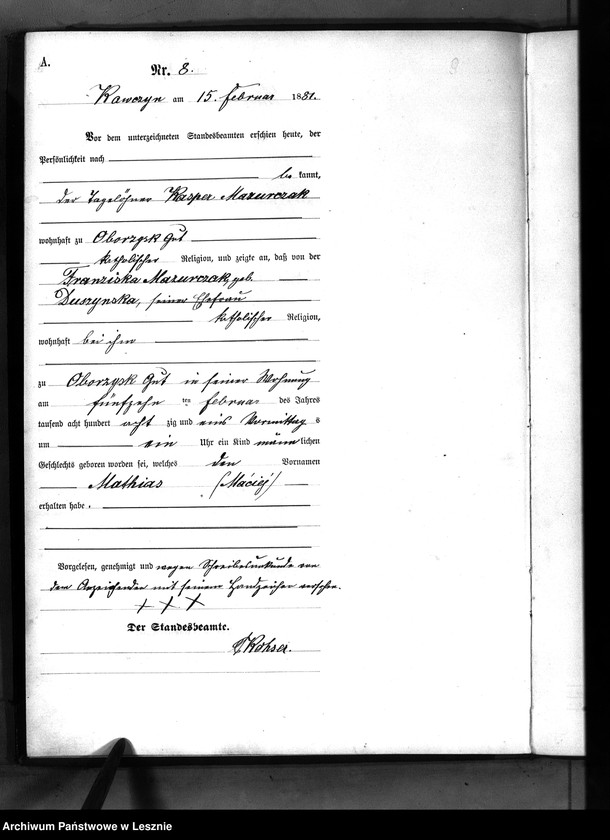 A.
9
Nr. 8.
Kawczyn am 15. Februar 1881.
Vor dem unterzeichneten Standesbeamten erschien heute, der
Persönlichkeit nach
be kannt,
der Tagelöhner Kasper Mazurczak
wohnhaft zu Oborzysk Gut
katholischer Religion, und zeigte an, daß von der
Franziska Mazurczak, geb.
Duszynska, seiner Ehefrau
katholischer Religion,
wohnhaft bei ihm
zu Oborzysk Gut in seiner Wohnung
am fünfzehn ten Februar des Jahres
tausend acht hundert acht zig und eins Vormittag s
um ein Uhr ein Kind männ lichen
Geschlechts geboren worden sei, welches den Vornamen
Mathias (Maciej)
erhalten habe.
Vorgelesen, genehmigt und wegen Schreibensunkunde von
dem Anzeigenden mit seinem Handzeichen versehen.
+ + +
Der Standesbeamte.
Archiwum Państwowe w Lesznie